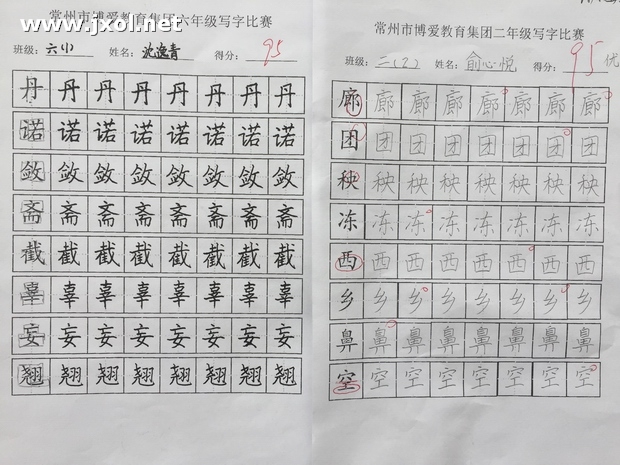 www.jxol.net
常州市博爱教育集团六年级写字比赛
班级：六(1) 姓名：沈逸青 得分：95
丹 丹 丹 丹 丹 丹 丹 丹
诺 诺 诺 诺 诺 诺 诺 诺
敛 敛 敛 敛 敛 敛 敛 敛
斋 斋 斋 斋 斋 斋 斋 斋
截 截 截 截 截 截 截 截
辜 辜 辜 辜 辜 辜 辜 辜
妄 妄 妄 妄 妄 妄 妄 妄
翘 翘 翘 翘 翘 翘 翘 翘
常州市博爱教育集团二年级写字比赛
班级：二(2) 姓名：俞心悦 得分：95 优
廊 廊 廊 廊 廊 廊 廊 廊
团 团 团 团 团 团 团 团
秧 秧 秧 秧 秧 秧 秧 秧
冻 冻 冻 冻 冻 冻 冻 冻
西 西 西 西 西 西 西 西
乡 乡 乡 乡 乡 乡 乡 乡
鼻 鼻 鼻 鼻 鼻 鼻 鼻 鼻
空 空 空 空 空 空 空 空